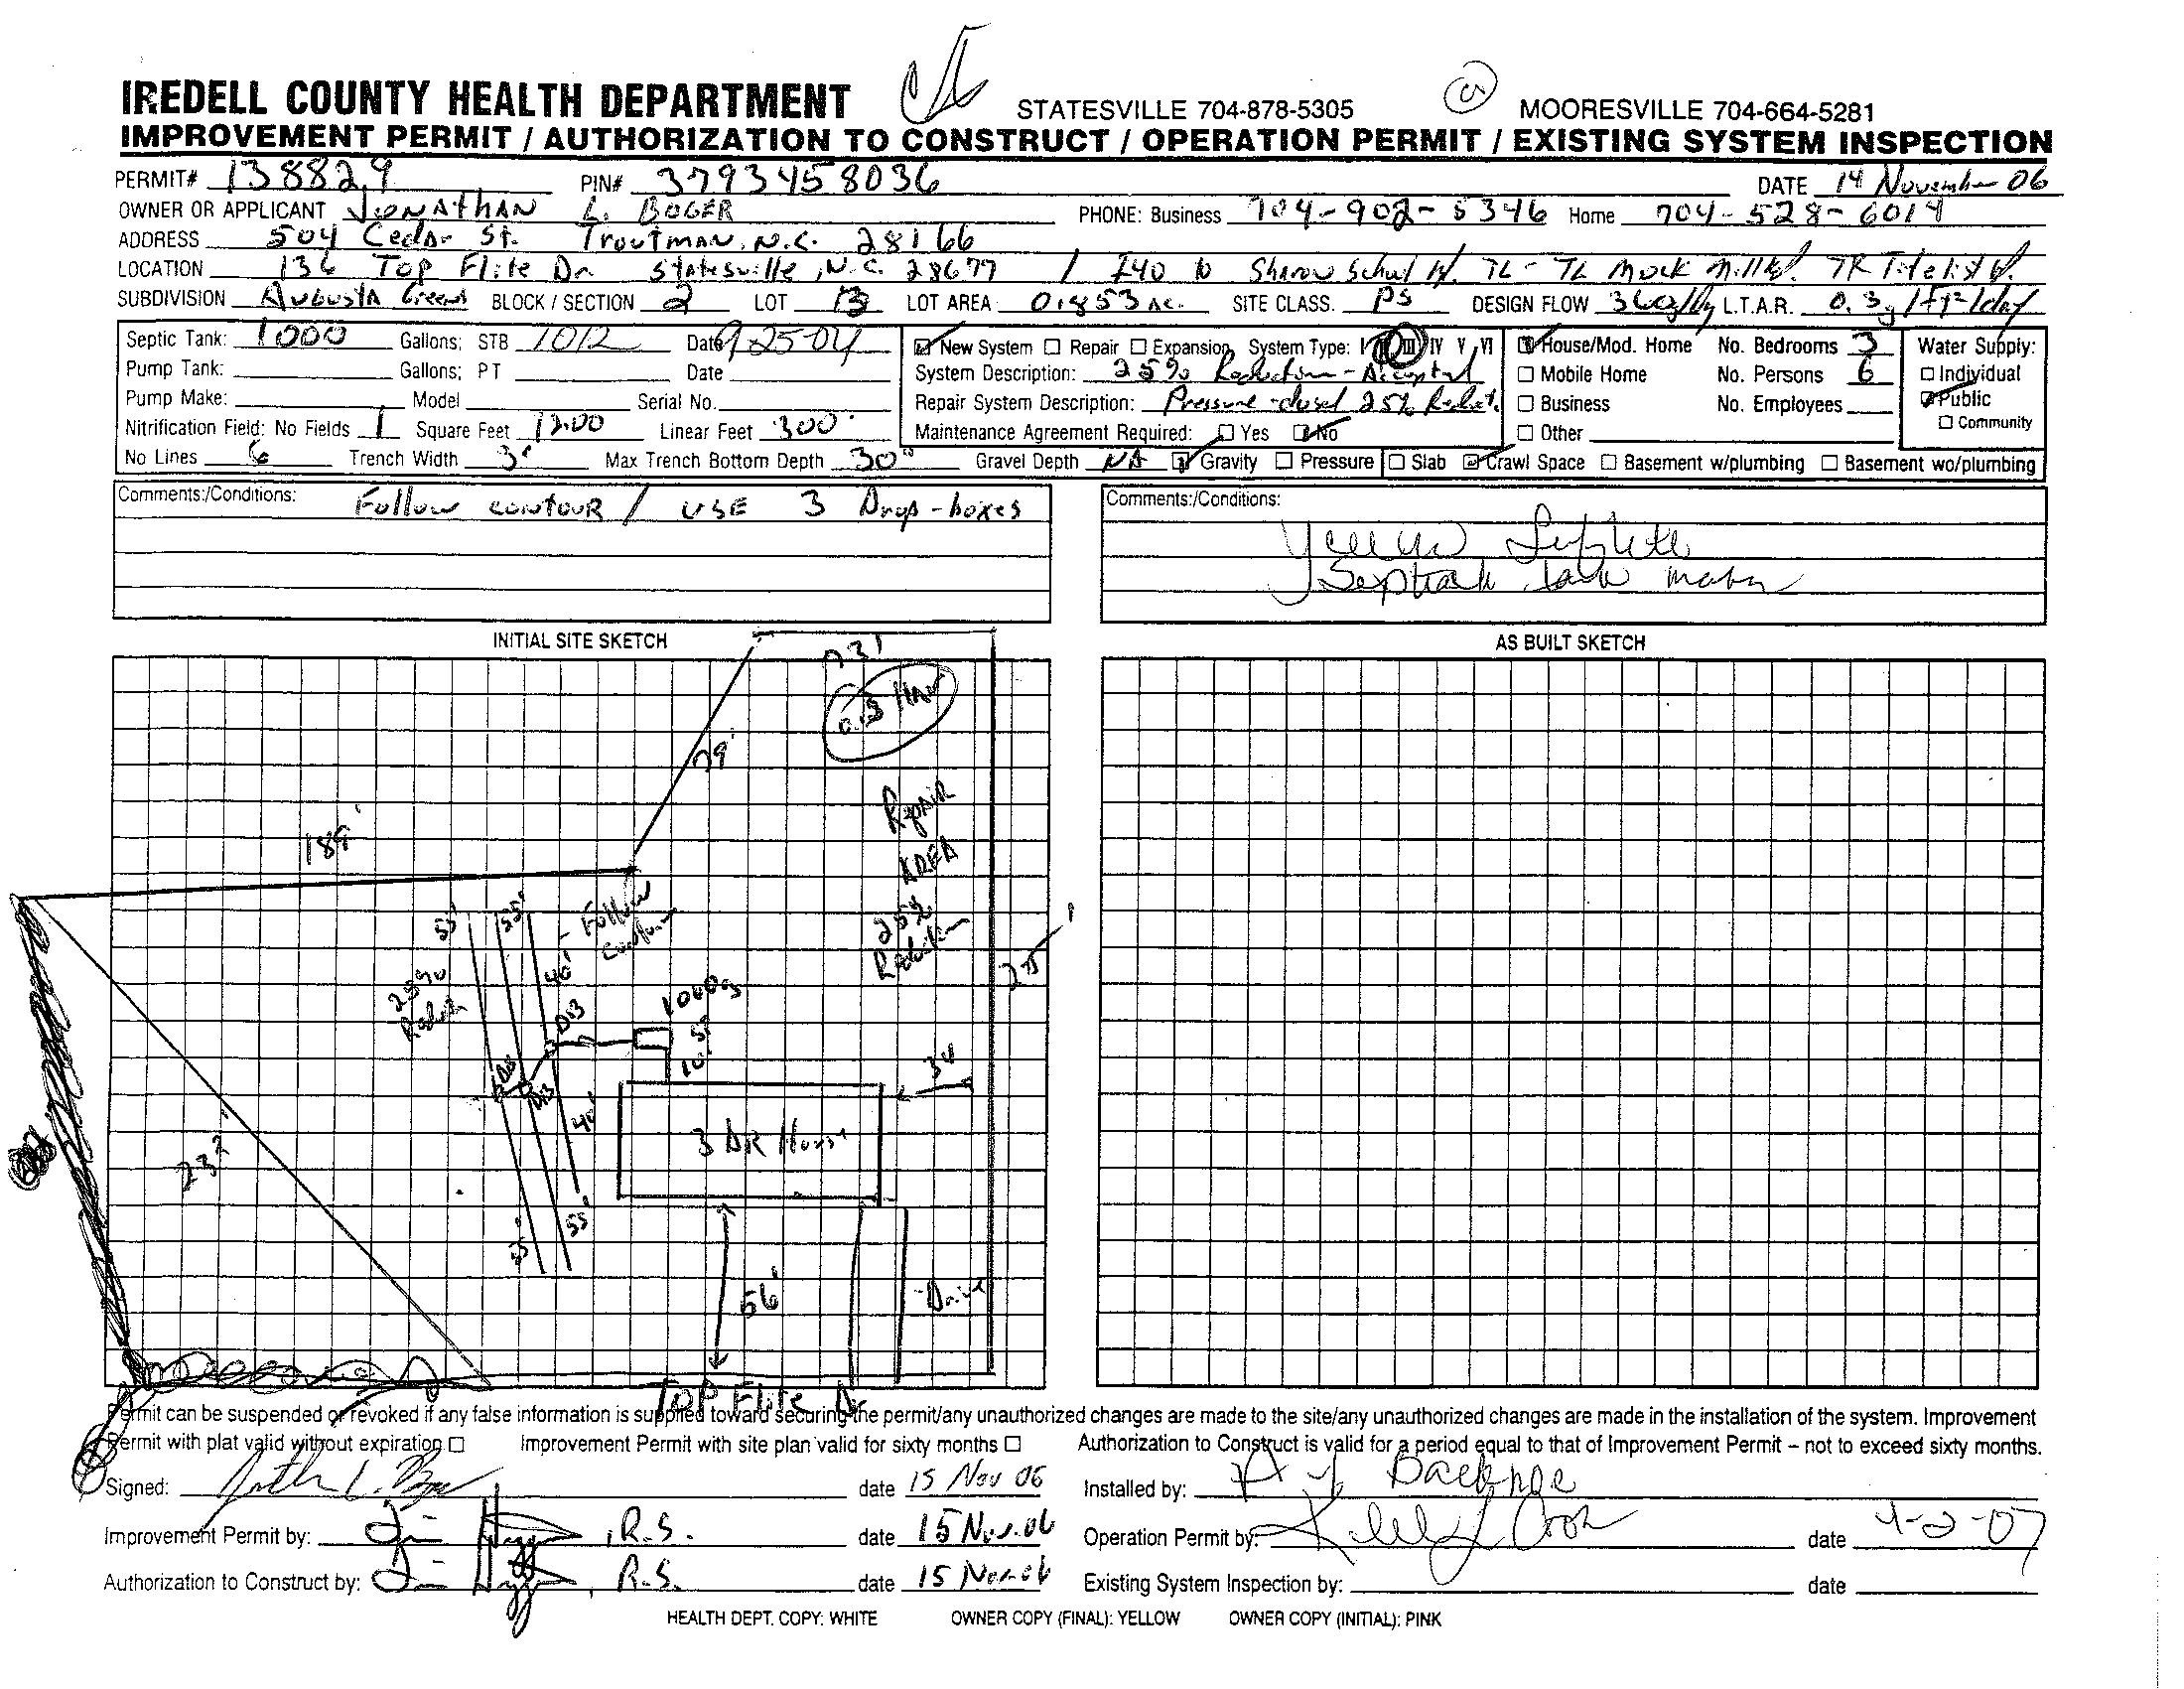 IREDELL COUNTY HEALTH DEPARTMENT STATESVILLE 704-878-5305 MOORESVILLE 704-664-5281
IMPROVEMENT PERMIT / AUTHORIZATION TO CONSTRUCT / OPERATION PERMIT / EXISTING SYSTEM INSPECTION
PERMIT# 138829 PIN# 3793458036 DATE 14 November 06
OWNER OR APPLICANT JONATHAN L. BOGER PHONE: Business 704-902-5346 Home 704-528-6014
ADDRESS 504 Cedar St. Troutman, N.C. 28166
LOCATION 136 Top Flite Dr. Statesville, N.C. 28677 / I40 to Sharon School Rd. TL - TL Mock Mill Rd. TR Titelist Rd.
SUBDIVISION Augusta Greens BLOCK / SECTION 2 LOT 13 LOT AREA 0.853 AC. SITE CLASS. PS DESIGN FLOW L.T.A.R. 0.3 g/Ft²/day
Septic Tank: 1000 Gallons: STB 1012 Date 9-25-04 New System Repair Expansion System Type: I II III IV V VI House/Mod. Home No. Bedrooms 3 Water Supply:
Pump Tank: Gallons: PT Date System Description: 25% Reduction - Accepted Mobile Home No. Persons 6 Individual
Pump Make: Model Serial No. Repair System Description: Pressure-dosed 25% Reduct. Business No. Employees Public
Nitrification Field: No Fields 1 Square Feet 1200 Linear Feet 300' Maintenance Agreement Required: Yes No Other Community
No Lines 6 Trench Width 3' Max Trench Bottom Depth 30" Gravel Depth NA Gravity Pressure Slab Crawl Space Basement w/plumbing Basement wo/plumbing
Comments:/Conditions: Follow contour / USE 3 Drop-boxes
Comments:/Conditions:
INITIAL SITE SKETCH
AS BUILT SKETCH
79'
Repair
AREA
25%
189'
55'
55'
- Follow
40'
25%
1000g
DB
10'
34
DB
DB
40'
3 BR House
55'
55'
56'
Drive
Top Flite Dr
Permit can be suspended or revoked if any false information is supplied toward securing the permit/any unauthorized changes are made to the site/any unauthorized changes are made in the installation of the system. Improvement
Permit with plat valid without expiration Improvement Permit with site plan valid for sixty months Authorization to Construct is valid for a period equal to that of Improvement Permit – not to exceed sixty months.
Signed: date 15 Nov 06 Installed by: Backhoe
Improvement Permit by: , R.S. date 15 Nov. 06 Operation Permit by: Kelly Cook date 4-2-07
Authorization to Construct by: , R.S. date 15 Nov. 06 Existing System Inspection by: date
HEALTH DEPT. COPY: WHITE OWNER COPY (FINAL): YELLOW OWNER COPY (INITIAL): PINK